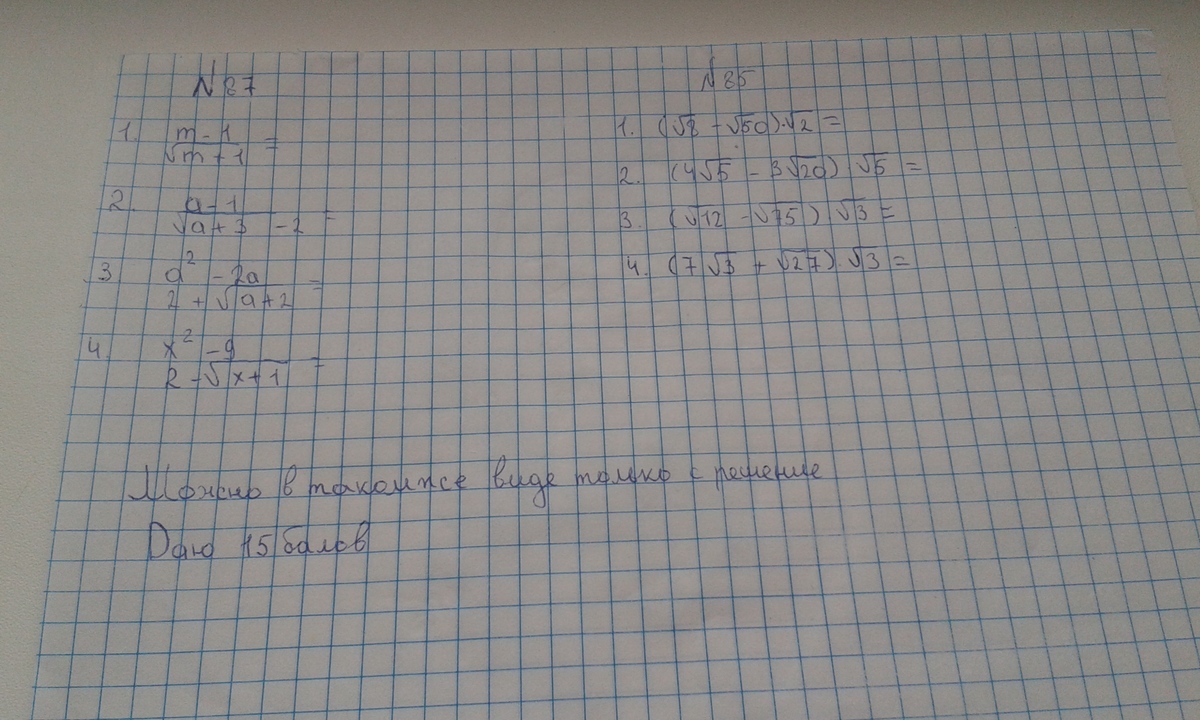 №87
1. m-1 / √m+1 =
2. a-1 / √a+3 -2 =
3 a² -2a / 2+√a+2 =
4 x² -9 / 2-√x+1 =
№85
1. (√8 -√50)·√2 =
2. (4√5 - 3√20) √5 =
3. (√12 -√75) √3 =
4. (7√3 + √27)·√3 =
Можно в такомже виде только с решение
Даю 15 балов